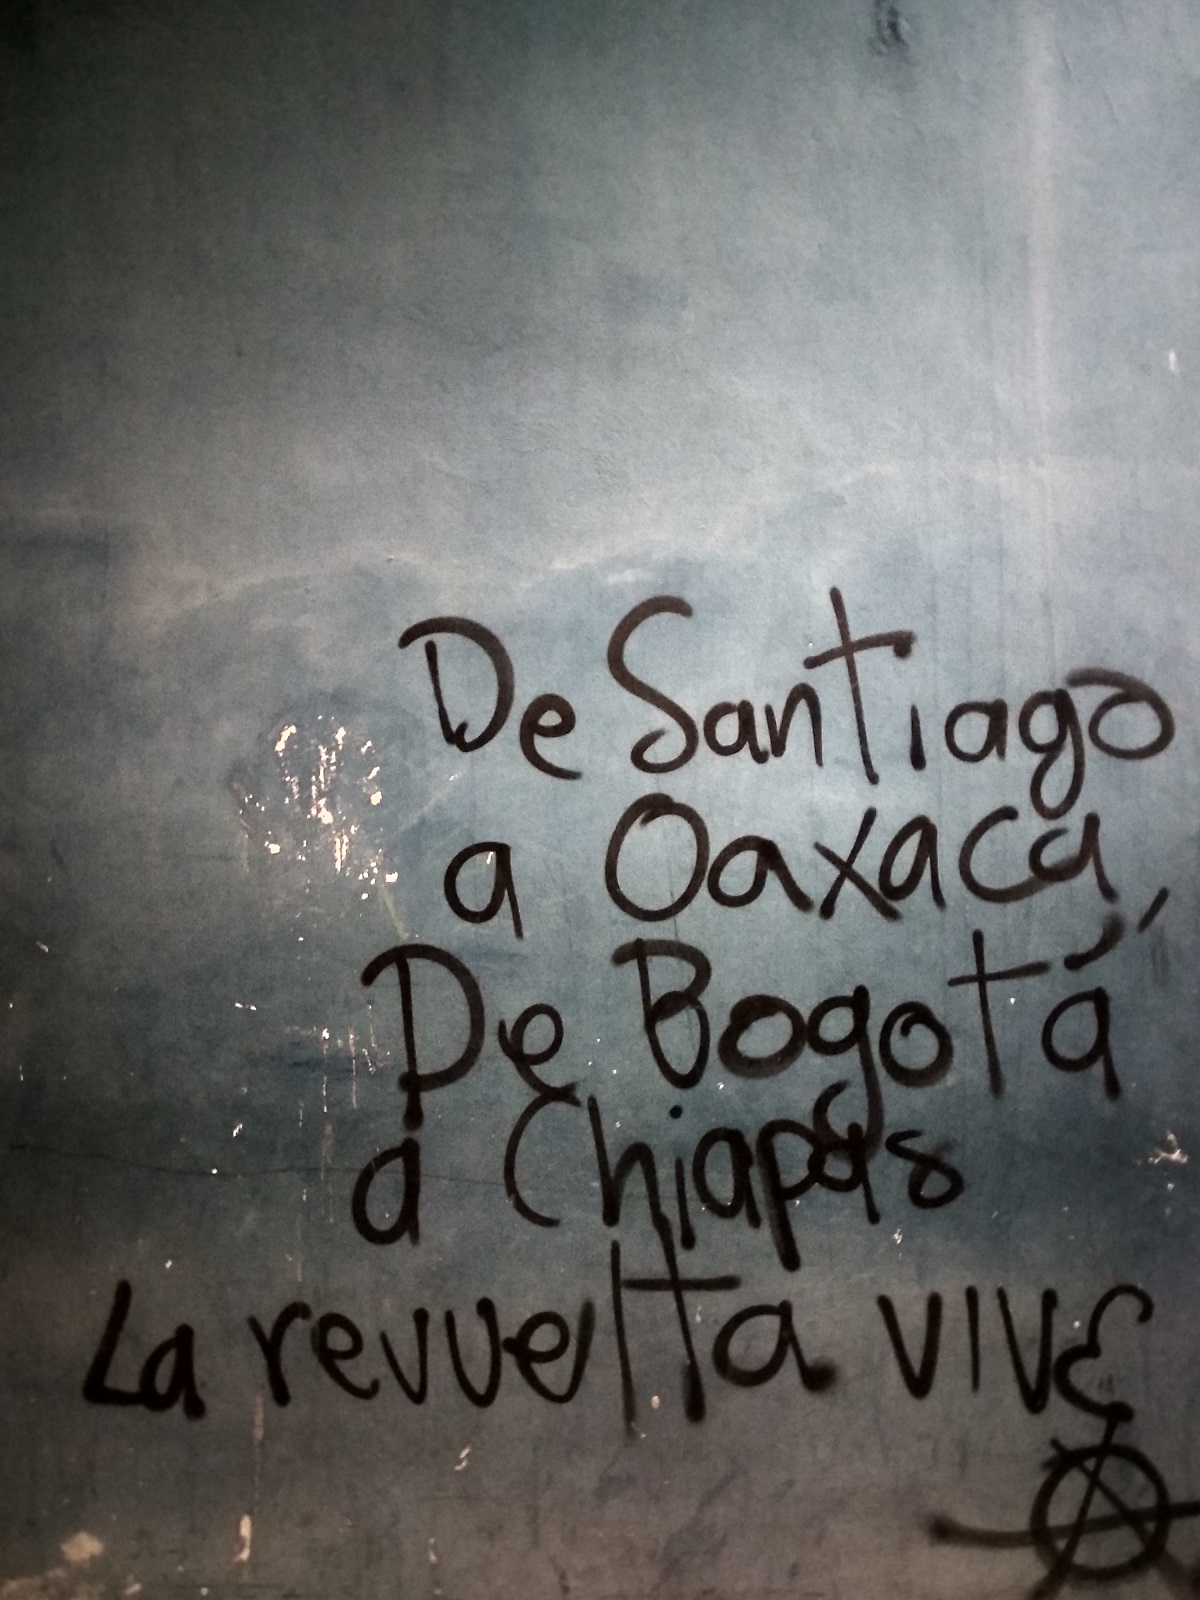 De Santiago
a Oaxaca,
De Bogotá
a Chiapas
La revuelta vive